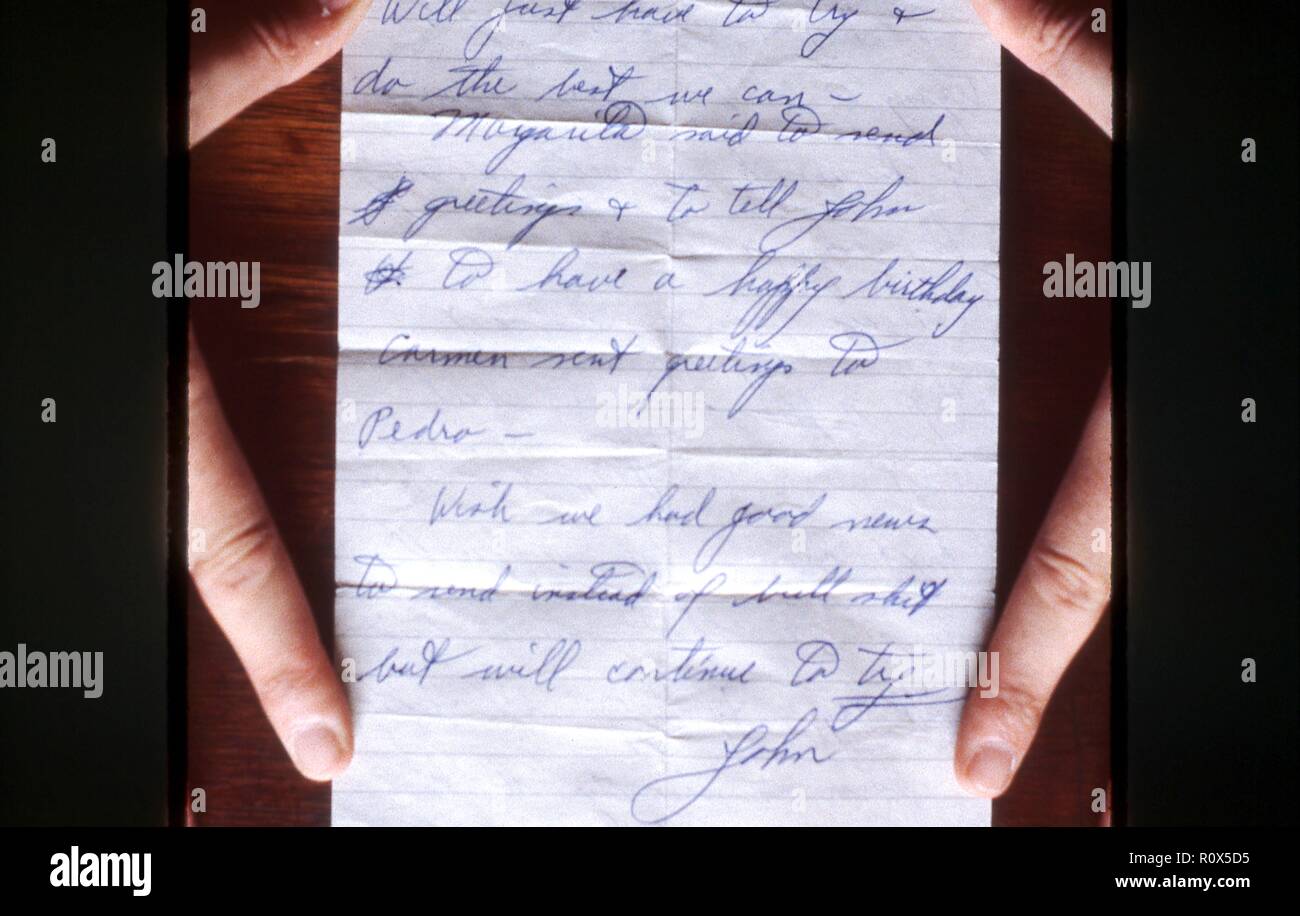 Will just have to try &
do the best we can —
Margarita said to send
greetings & to tell John
to have a happy birthday
Carmen sent greetings to
Pedro —
Wish we had good news
to send instead of bull shit
but will continue to try
John
a alamy
alamy
a alamy
alamy
a
alamy
Image ID: R0X5D5
www.alamy.com